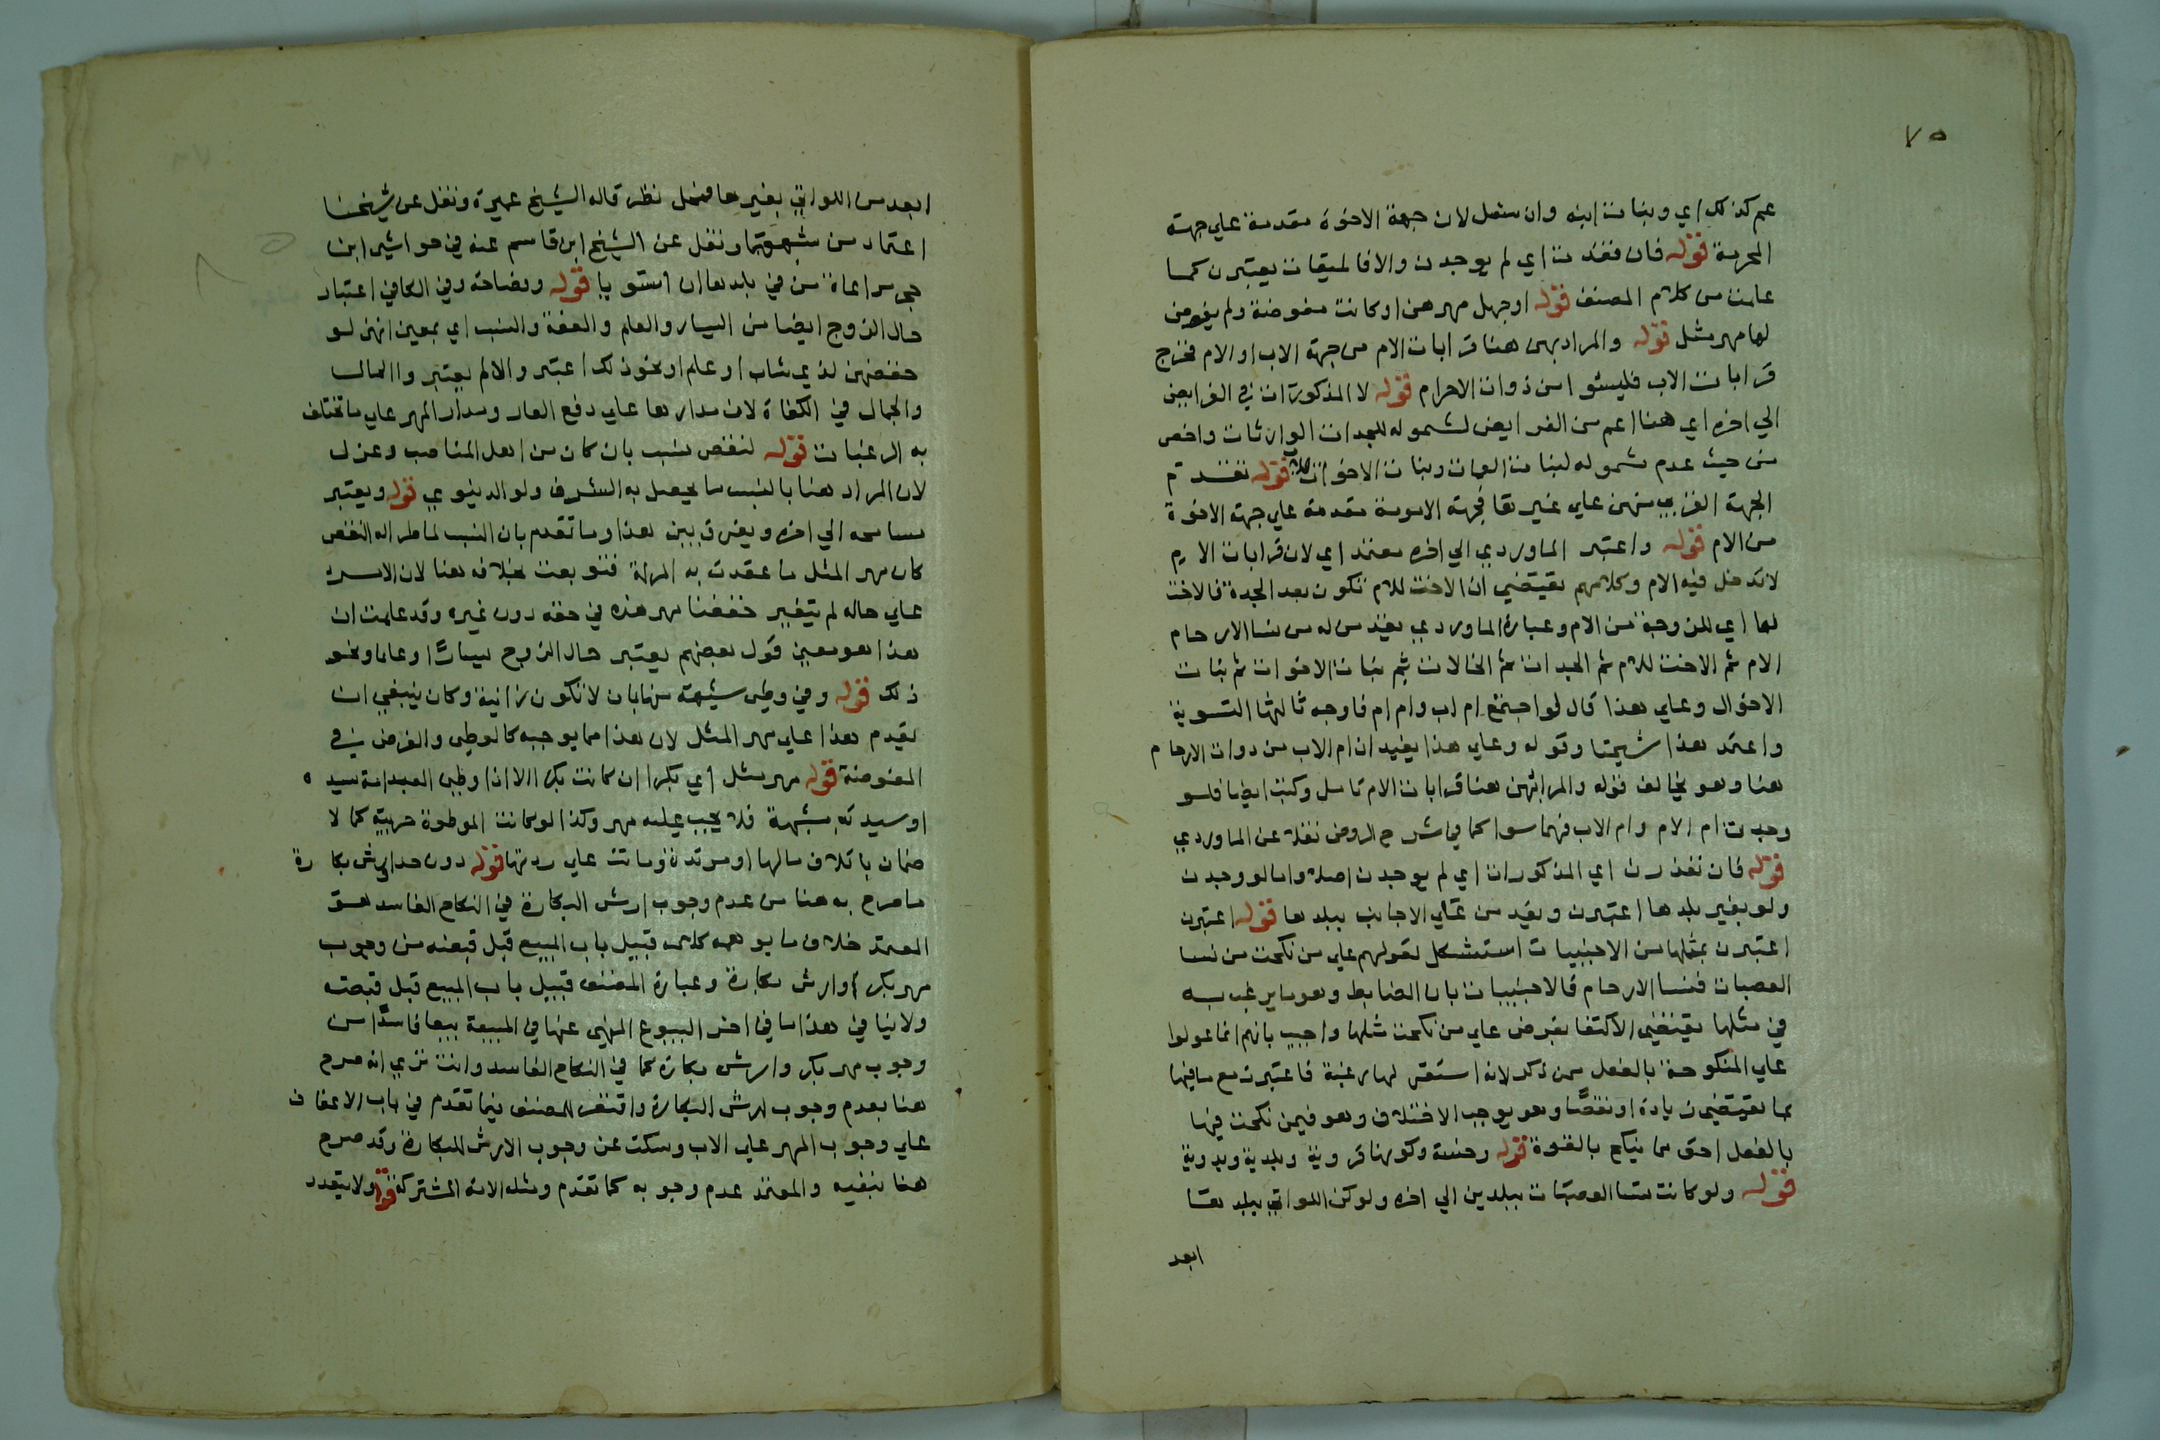 ٧٥
عم كذلك اي وبنات ابنه وان سفل لان جهة الاخوة مقدمة علي جهة
قوله فان فقدت اي لم يوجدن والا فالميتات يعتبرن كما
علمت من كلام المصنف قوله او جهل مهرهن او كانت مفوضة ولم يفرض
لها مهر مثل قوله والمراد بهن هنا قرابات الام من جهة الاب او الام فخرج
قرابات الاب فليسوا من ذوات الارحام قوله لا المذكورات في الفرايض
الي اخره اي هنا اعم من الفرايض لشموله للجدات الوارثات واخص
من حيث عدم شموله لبنات العمات وبنات الاخوات قوله تقدم
الجهة القربي منهن علي غيرها فجهة الامومة مقدمة علي جهة الاخوة
من الام قوله واعتبر الماوردي الي اخره معتمد اي لان قرابات الام
لا تدخل فيه الام وكلامهم يقتضي ان الاخت للام تكون بعد الجدة فالاخت
لها اي للزوجة من الام وعبارة الماوردي يقدم من له من نسا الارحام
الام ثم الاخت للام ثم الجدات ثم الخالات ثم بنات الاخوات ثم بنات
الاخوال وعلي هذا قال لو اجتمع ام اب وام ام فاوجه ثالثها التسوية
واعتمد هذا شيخنا وقوله وعلي هذا يفيد ان ام الاب من ذوات الارحام
هنا وهو يخالف قوله والمراد بهن هنا قرابات الام تامل وكتب ايضا فلو
وجدت ام الام وام الاب فهما سوا كما في شرح الروض نقلا عن الماوردي
قوله فان تعذرن اي المذكورات اي لم يوجدن اصلا واما لو وجدن
ولو بغير بلدها اعتبرن ويقدمن علي الاجانب ببلدها قوله اعتبرن
اعتبرن بمثلها من الاجنبيات استشكل بقولهم علي من نكحت من نسا
العصبات فنسا الارحام فالاجنبيات بان الضابط وهو ما يرغب به
في مثلها يقتضي الاكتفا بفرض علي من نكحت مثلها واجيب بانهم انما عولوا
علي المنكوحة بالفعل ممن ذكر لانه استقر لها رغبة فاعتبرت مع ما فيها
مما يقتضي زيادة او نقصا وهو يوجب الاختلاف وهو فيمن نكحت فيها
بالفعل احق مما ينكح بالقوة قوله وحسنة وكونها قروية وبلدية وبدوية
قوله ولو كانت نسا العصبات ببلدين الي اخره ولو كن اللواتي ببلدها
ابعد
ابعد من اللواتي بغيرها فمحل نظر قاله الشيخ عميرة ونقل عن شيخنا
اعتماد من شبهتها ونقل عن الشيخ ابن قاسم عنه في حواشي ابن
حجر مراعاة من في بلدها ان استويا قوله وفصاحة وفي الكافي اعتبار
حال الزوج ايضا من اليسار والعلم والعفة والنسب اي بمعني انهن لو
خفضن لذي شاب او علم او نحو ذلك اعتبر والا لم يعتبر والمال
والجمال في الكفاة لان مدارها علي دفع العار ومدار المهر علي ما تختلف
به الرغبات قوله لنقص نسب بان كان من اهل المناصب وعزل
لان المراد هنا بالنسب ما يحصل به الشرف ولو الدنيوي قوله ويعتبر
مسامحة الي اخره ويفرق بين هذا وما تقدم بان النسب لما طرا له النقص
كان مهر المثل ما عقدت به المراة فتوبعت بخلافه هنا لان الامر
علي حاله لم يتغير خففنا مهر هذه في حقه دون غيره وقد علمت ان
هذا هو معني قول بعضهم يعتبر حال الزوج يسارا وعلما ونحو
ذلك قوله وفي وطي شبهة منها بان لا تكون زانية وكان ينبغي ان
يقدم هذا علي مهر المثل لان هذا مما يوجبه كالوطي والفرض في
المفوضة قوله مهر مثل اي بكرا ان كانت بكرا الا ان وطي العبد امة سيده
او سيدته بشبهة فلا يجب عليه مهر وكذا لو كانت الموطوة حربية كما لا
ضمان باتلاف مالها او مرتدة وماتت علي ردتها قوله دون حد وارش بكارة
ما صرح به هنا من عدم وجوب ارش البكارة في النكاح الفاسد هو
المعتمد خلاف ما يوهمه كلامه قبيل باب المبيع قبل قبضه من وجوب
مهر بكر وارش بكارة وعبارة المصنف قبيل باب المبيع قبل قبضه
ولا ينافي هذا ما في اخر البيوع المنهي عنها في المبيعة بيعا فاسدا من
وجوب مهر بكر وارش بكارة كما في النكاح الفاسد وانت تري انه صرح
هنا بعدم وجوب ارش البكارة واقتصر المصنف فيما تقدم في باب الاعفاف
علي وجوب المهر علي الاب وسكت عن وجوب الارش للبكارة وقد صرح
هنا بنفيه والمعتمد عدم وجوبه كما تقدم ومثله الامة المشتركة قوله ولا يتعدد